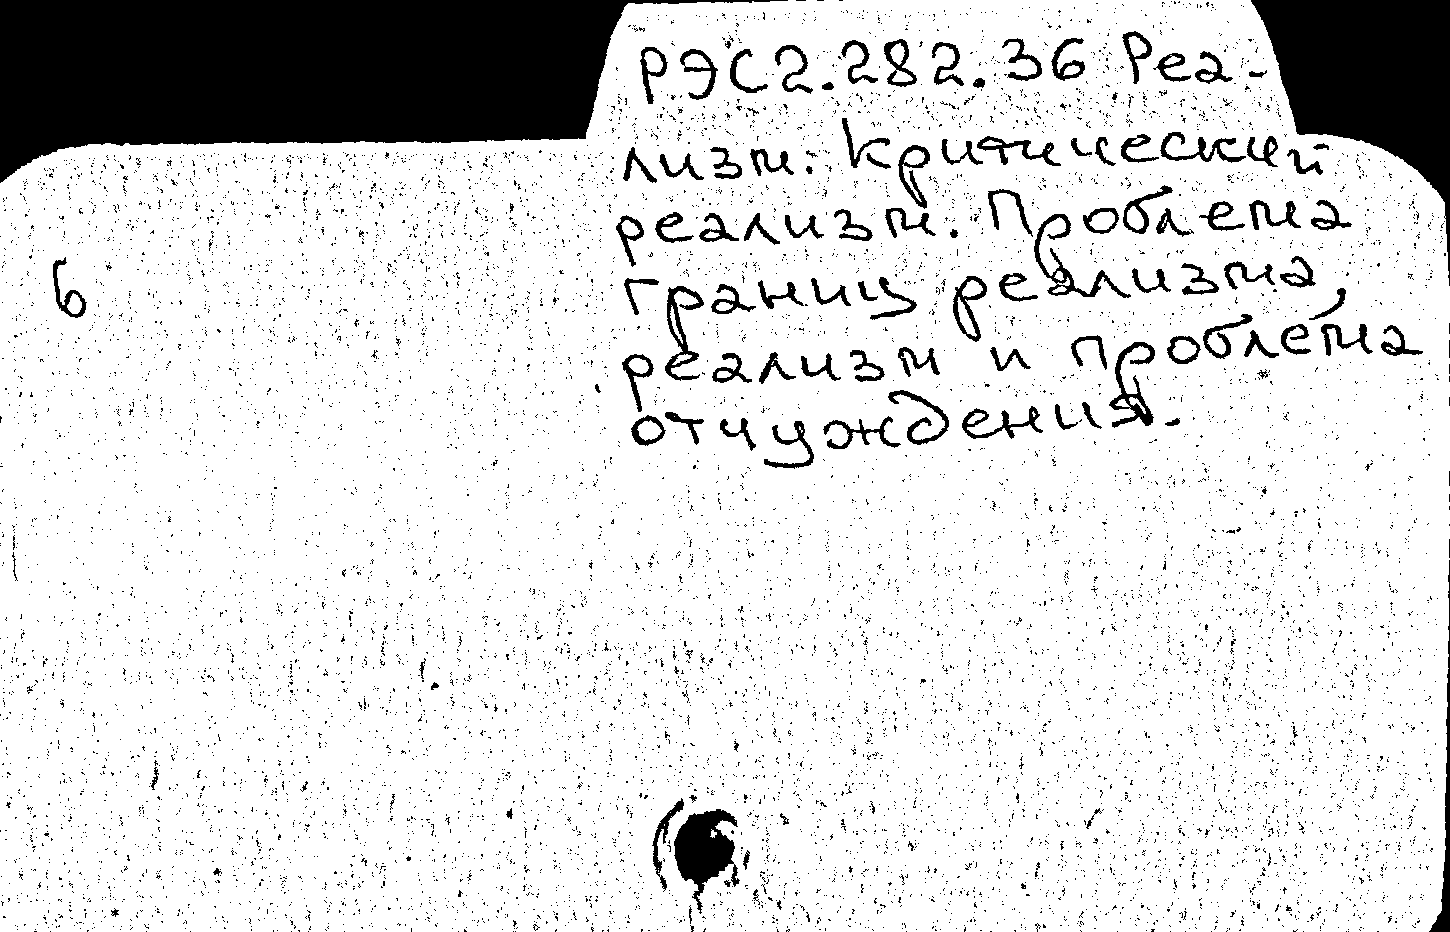 РЭС2.282.36 Реа-
лизм. Критический
реализм. Проблема
границ реализма,
6
реализм и проблема
отчуждения.